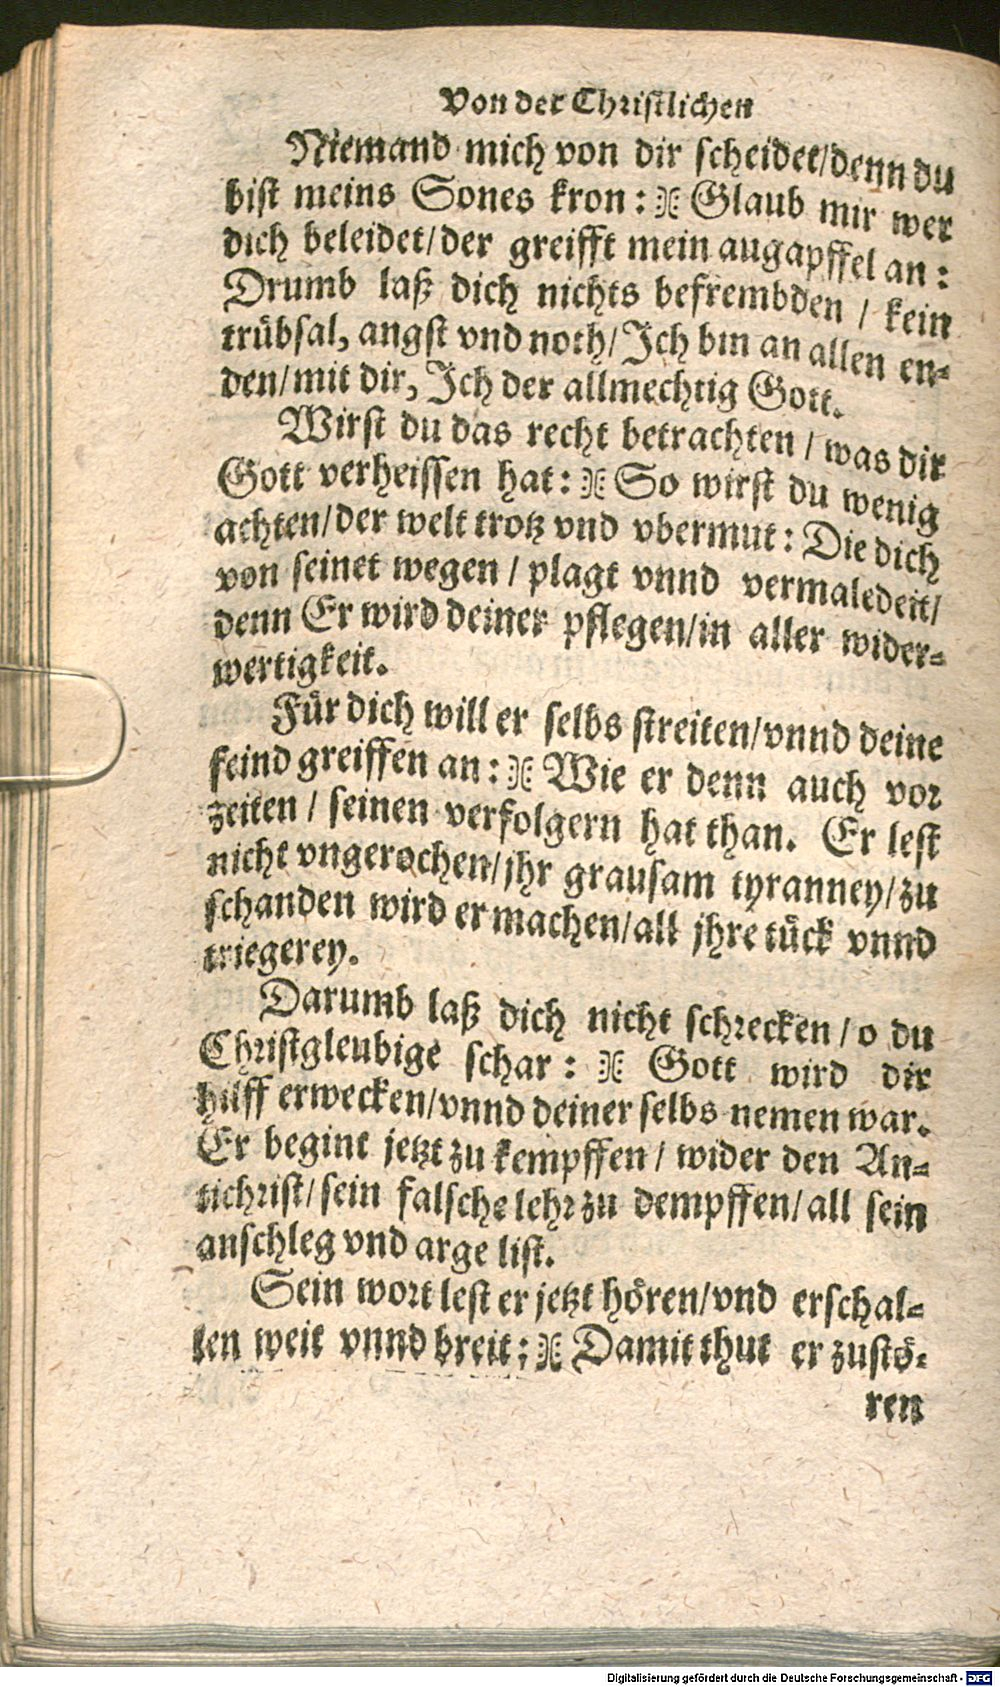 Von der Christlichen
Niemand mich von dir scheidet/denn du
bist meins Sones kron : Glaub mir wer
dich beleidet/der greifft mein augapffel an :
Drumb laß dich nichts befrembden / kein
trübsal, angst vnd noth/Ich bin an allen en-
den/mit dir, Ich der allmechtig Gott.
Wirst du das recht betrachten / was dir
Gott verheissen hat : So wirst du wenig
achten/der welt trotz vnd vbermut : Die dich
von seinet wegen / plagt vnnd vermaledeit/
denn Er wird deiner pflegen/in aller wider-
wertigkeit.
Für dich will er selbs streiten/vnnd deine
feind greiffen an : Wie er denn auch vor
zeiten / seinen verfolgern hat than. Er lest
nicht vngerochen/jhr grausam tyranney/zu
schanden wird er machen/all jhre tück vnnd
triegerey.
Darumb laß dich nicht schrecken / o du
Christgleubige schar : Gott wird dir
hilff erwecken/vnnd deiner selbs nemen war.
Er begint jetzt zu kempffen / wider den An-
tichrist/sein falsche lehr zu dempffen/all sein
anschleg vnd arge list.
Sein wort lest er jetzt hören/vnd erschal-
len weit vnnd breit : Damit thut er zustö-
ren
Digitalisierung gefördert durch die Deutsche Forschungsgemeinschaft - DFG